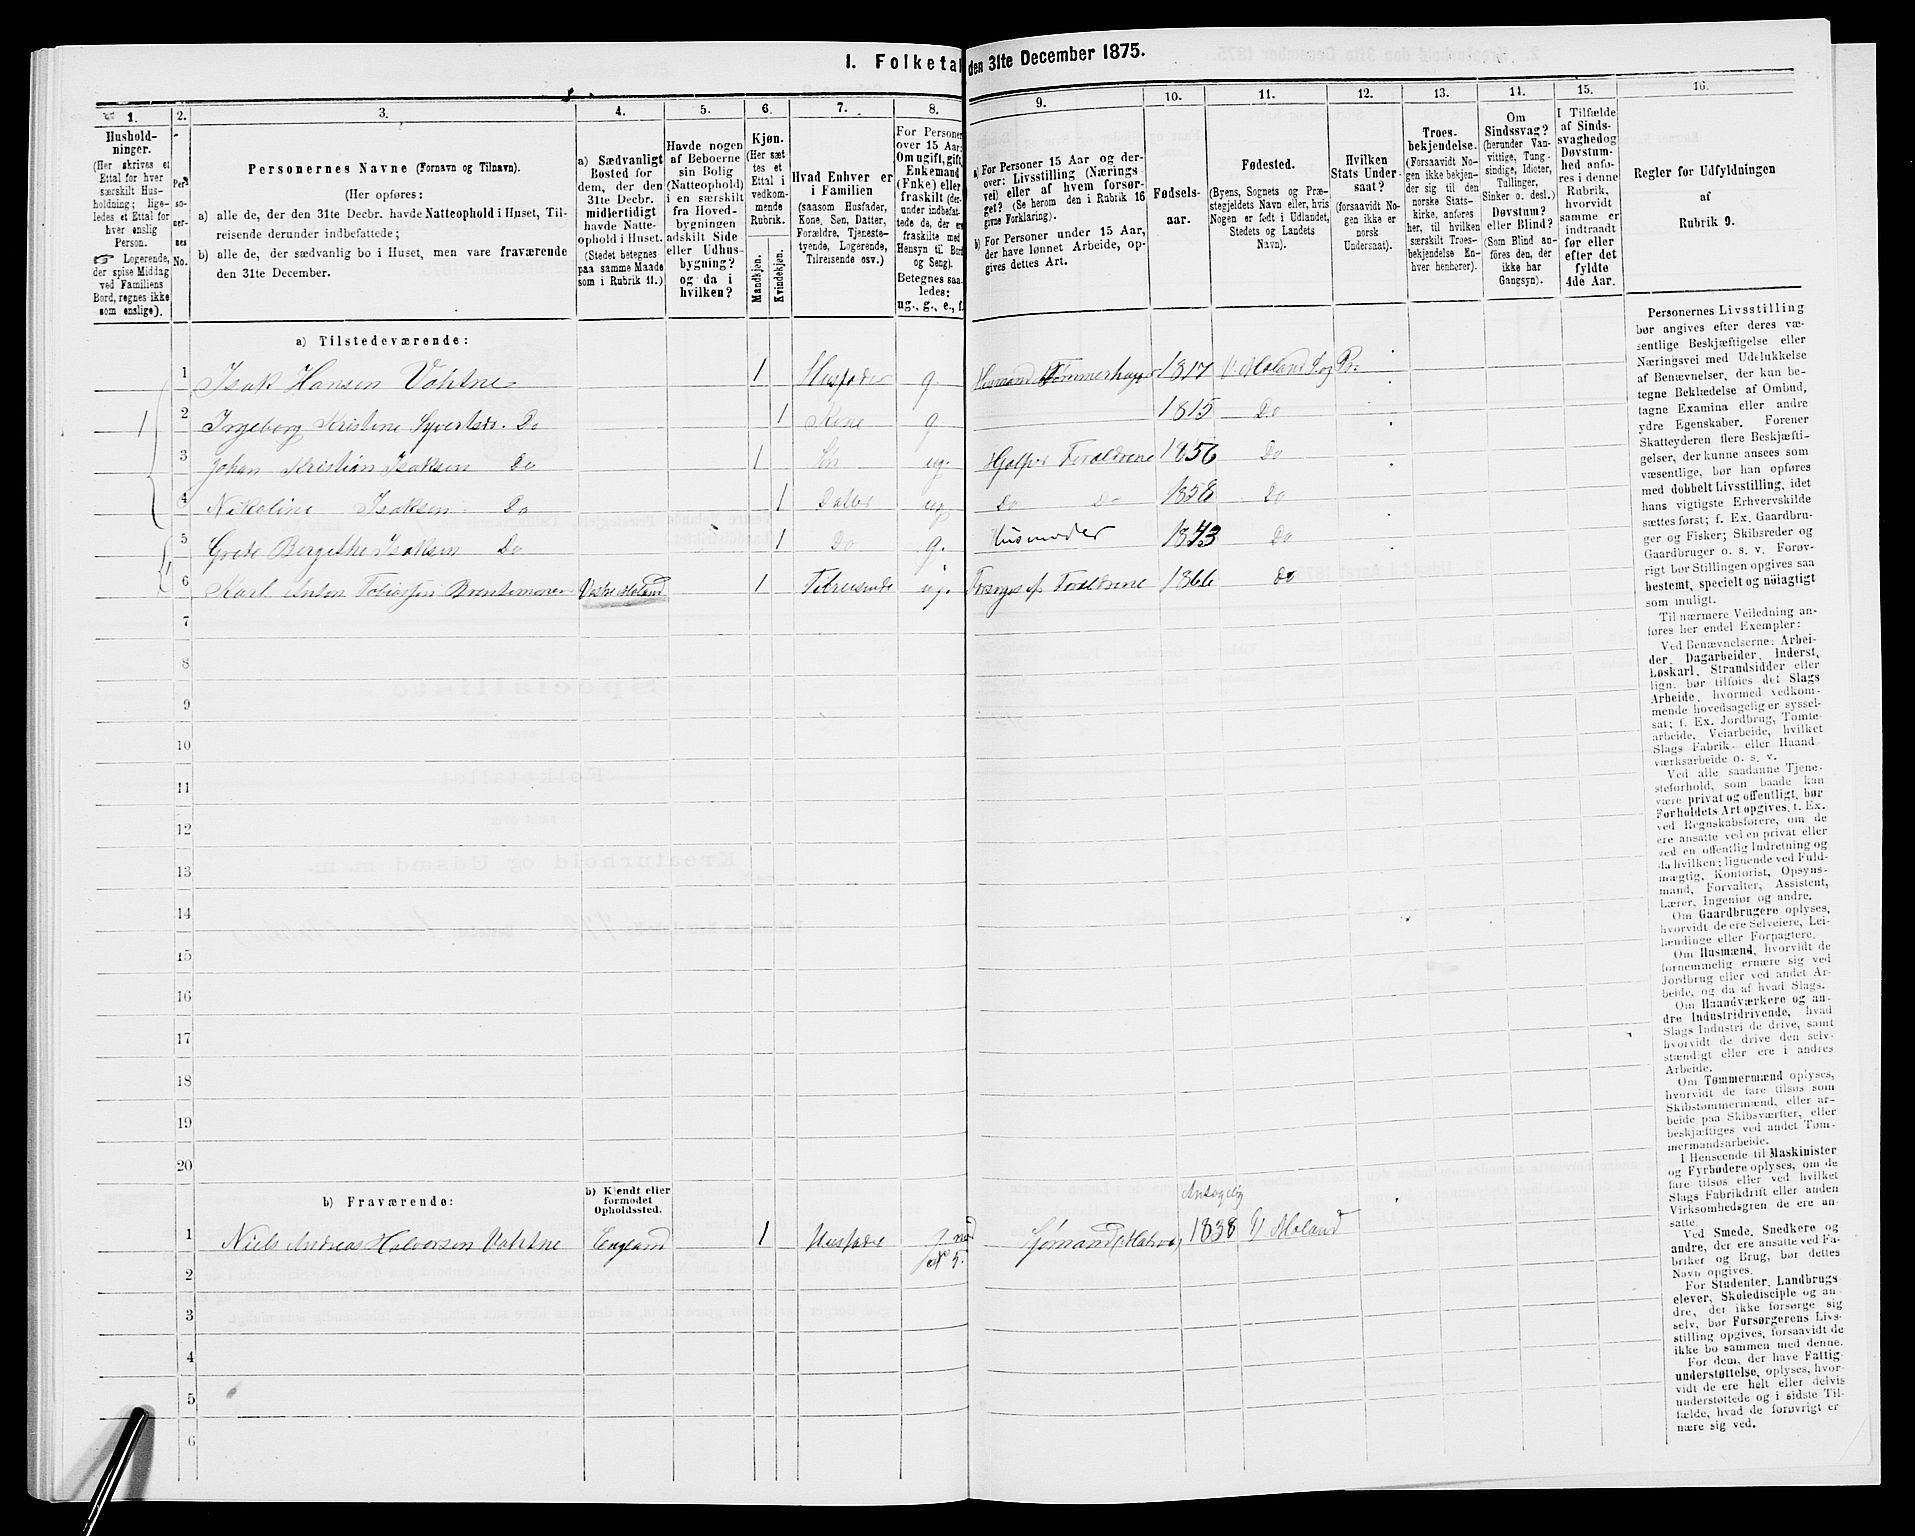 I. Folketal
den 31te December 1875.
1.
Hushold-
ninger.
(Her skrives et
Ettal for hver
særskilt Hus-
holdning; lige-
ledes et Ettal for
hver enslig
Person.
☞ Logerende,
der spise Middag
ved Familiens
Bord, regnes ikke
som enslige).
2.
Per-
so-
ner-
nes
No.
3.
Personernes Navne (Fornavn og Tilnavn).
(Her opføres:
a) alle de, der den 31te Decbr. havde Natteophold i Huset, Til-
reisende derunder indbefattede;
b) alle de, der sædvanlig bo i Huset, men vare fraværende
den 31te December.
4.
a) Sædvanligt
Bosted for
dem, der den
31te Decbr.
midlertidigt
havde Natte-
ophold i Huset.
(Stedet betegnes
paa samme Maade
som i Rubrik 11.)
5.
Havde nogen
af Beboerne
sin Bolig
(Natteophold)
i en særskilt
fra Hoved-
bygningen
adskilt Side
eller Udhus-
bygning?
og da i
hvilken?
6.
Kjøn.
(Her sæt-
tes et
Ettal i
vedkom-
mende
Rubrik.
Mandkjøn.
Kvindekjøn.
7.
Hvad Enhver er
i Familien
(saasom Husfader,
Kone, Søn, Datter,
Forældre, Tjeneste-
tyende, Logerende,
Tilreisende osv.)
8.
For Personer
over 15 Aar:
Om ugift, gift,
Enkemand
(Enke) eller
fraskilt (der-
under indbefat-
tede de, der er
fraskilte med
Hensyn til Bord
og Seng).
Betegnes saa-
ledes:
ug., g., e., f.
9.
a) For Personer 15 Aar og der-
over: Livsstilling (Nærings-
vei) eller af hvem forsør-
get? (Se herom den i Rubrik 16
givne Forklaring).
b) For Personer under 15 Aar,
der have lønnet Arbeide, op-
gives dettes Art.
10.
Fødsels-
aar.
11.
Fødested.
(Byens, Sognets og Præ-
stegjeldets Navn eller, hvis
Nogen er født i Udlandet,
Stedets og Landets
Navn).
12.
Hvilken
Stats Under-
saat?
(forsaavidt No-
gen ikke er
norsk
Undersaat).
13.
Troes-
bekjendelse.
(Forsaavidt No-
gen ikke bekjen-
der sig til den
norske Stats-
kirke, anføres
her, til hvilken
særskilt Troes-
bekjendelse En-
hver henhører).
14.
Om
Sindssvag?
(herunder Van-
vittige, Tung-
sindige, Idioter,
Tullinger,
Sinker o. desl.)
Døvstum?
eller Blind?
(Som Blind an-
føres den, der
ikke har
Gangsyn).
15.
I Tilfælde
af Sinds-
svaghed og
Døvstum-
hed anfø-
res i denne
Rubrik,
hvorvidt
samme er
indtraadt
før eller
efter det
fyldte
4de Aar.
16.
Regler for Udfyldningen
af
Rubrik 9.
a) Tilstedeværende:
1 1 Isak Hansen Vahtne 1 Husfader g. Husmand Tømmerhugger 1817 V. Moland S. og Pr.
2 Ingeborg Kristine Syvertsd. Do 1 Kone g 1815 Do
3 Johan Kristian Isaksen Do 1 Søn ug. Hjælper Forældrene 1856 Do
4 Nikoline Isaksen Do 1 Datter ug Do Do 1858 Do
1 5 Grete Bergethe Isaksen Do 1 Do g. Husmoder 1843 Do
6 Karl Anton Tobiassen Vestre Moland 1 Tilreisende ug. Forsørges af Forældrene 1866 do
7
8
9
10
11
12
13
14
15
16
17
18
19
20
b) Fraværende:
b) Kjendt eller
formodet
Opholdssted.
Antagelig
1 Niels Andreas Halvorsen Vahtne England 1 Husfader g med
No 5. Sjømand (Matros) 1838 V. Moland
2
3
4
5
6
Personernes Livsstilling
bør angives efter deres væ-
sentlige Beskjæftigelse eller
Næringsvei med Udelukkelse
af Benævnelser, der kun be-
tegne Beklædelse af Ombud,
tagne Examina eller andre
ydre Egenskaber. Forener
Skatteyderen flere Beskjæfti-
gelser, der kunne ansees som
væsentlige, bør han opføres
med dobbelt Livsstilling, idet
hans vigtigste Erhvervskilde
sættes først; f. Ex. Gaardbru-
ger og Fisker; Skibsreder og
Gaardbruger o. s. v. Forøv-
rigt bør Stillingen opgives saa
bestemt, specielt og nøiagtigt
som muligt.
Til nærmere Veiledning an-
føres her endel Exempler:
Ved Benævnelserne: Arbei-
der, Dagarbeider, Inderst,
Løskarl, Strandsidder eller
lign. bør tilføies det Slags
Arbeide, hvormed vedkom-
mende hovedsagelig er syssel-
sat; f. Ex. Jordbrug, Tomte-
arbeide, Veiarbeide, hvilket
Slags Fabrik- eller Haand-
værksarbeide o. s. v.
Ved alle saadanne Tjene-
steforhold, som baade kan
være privat og offentligt, bør
Forholdets Art opgives, t. Ex.
ved Regnskabsførere, om de
ere ansatte ved en privat eller
ved en offentlig Indretning og
da hvilken; lignende ved Fuld-
mægtig, Kontorist, Opsyns-
mand, Forvalter, Assistent,
Lærer, Ingeniør og andre.
Om Gaardbrugere oplyses,
hvorvidt de ere Selveiere, Lei-
lændinge eller Forpagtere.
Om Husmænd, hvorvidt de
fornemmelig ernære sig ved
Jordbrug eller ved andet Ar-
beide, og da af hvad Slags.
Om Haandværkere og an-
dre Industridrivende, hvad
Slags Industri de drive, samt
hvorvidt de drive den selv-
stændigt eller ere i andres
Arbeide.
Om Tømmermænd oplyses,
hvorvidt de fare tilsøs som
Skibstømmermænd, eller ar-
beide paa Skibsværfter, eller
beskjæftiges ved andet Tøm-
mermandsarbeide.
I Henseende til Maskinister
og Fyrbødere oplyses, om de
fare tilsøs eller ved hvilket
Slags Fabrikdrift eller anden
Virksomhedsgren de ere an-
satte.
Ved Smede, Snedkere og
andre, der ere ansatte ved Fa-
briker og Brug, bør dettes
Navn opgives.
For Studenter, Landbrugs-
elever, Skoledisciple og an-
dre, der ikke forsørge sig
selv, bør Forsørgerens Livs-
stilling opgives, forsaavidt de
ikke bo sammen med denne.
For dem, der have Fattig-
understøttelse, oplyses, hvor-
vidt de ere helt eller delvis
understøttede og i sidste Til-
fælde, hvad de forøvrigt er-
nære sig ved.